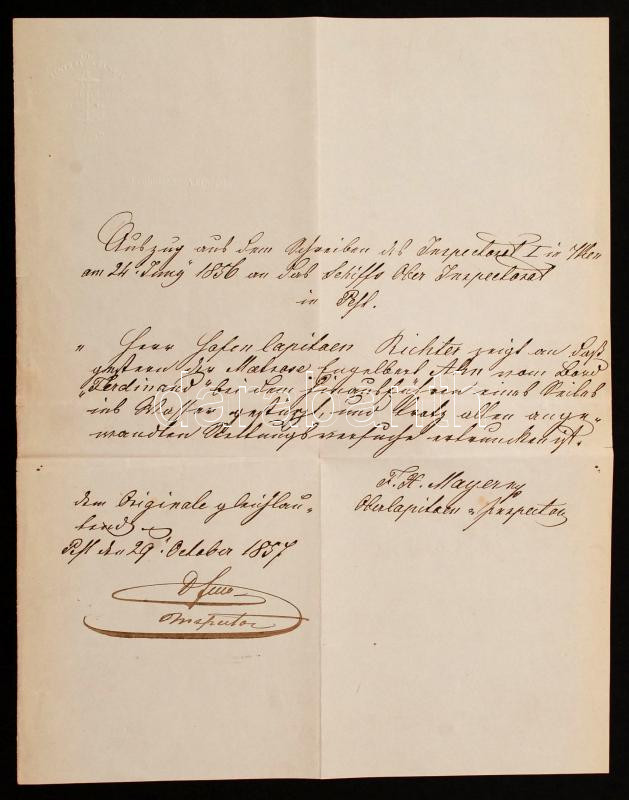 Auszug aus dem Schreiben des Inspectorat I in Wien
am 24 Juny 1856 an das Schiffs Ober Inspectorat
in Pest.
„ Herr Hafen Capitaen Richter zeigt an daß
gestern der Matrose Engelbert vom Bord
„Ferdinand" bei dem Hinausführen eines Seiles
ins Wasser gestürzt, und trotz allen ange-
wandten Rettungsversuche ertrunken ist.
F. H. Mayern
Obercapitaen u Inspector
dem Originale gleichlau-
tend
Pest den 29t October 1857
Inspector
darabanth